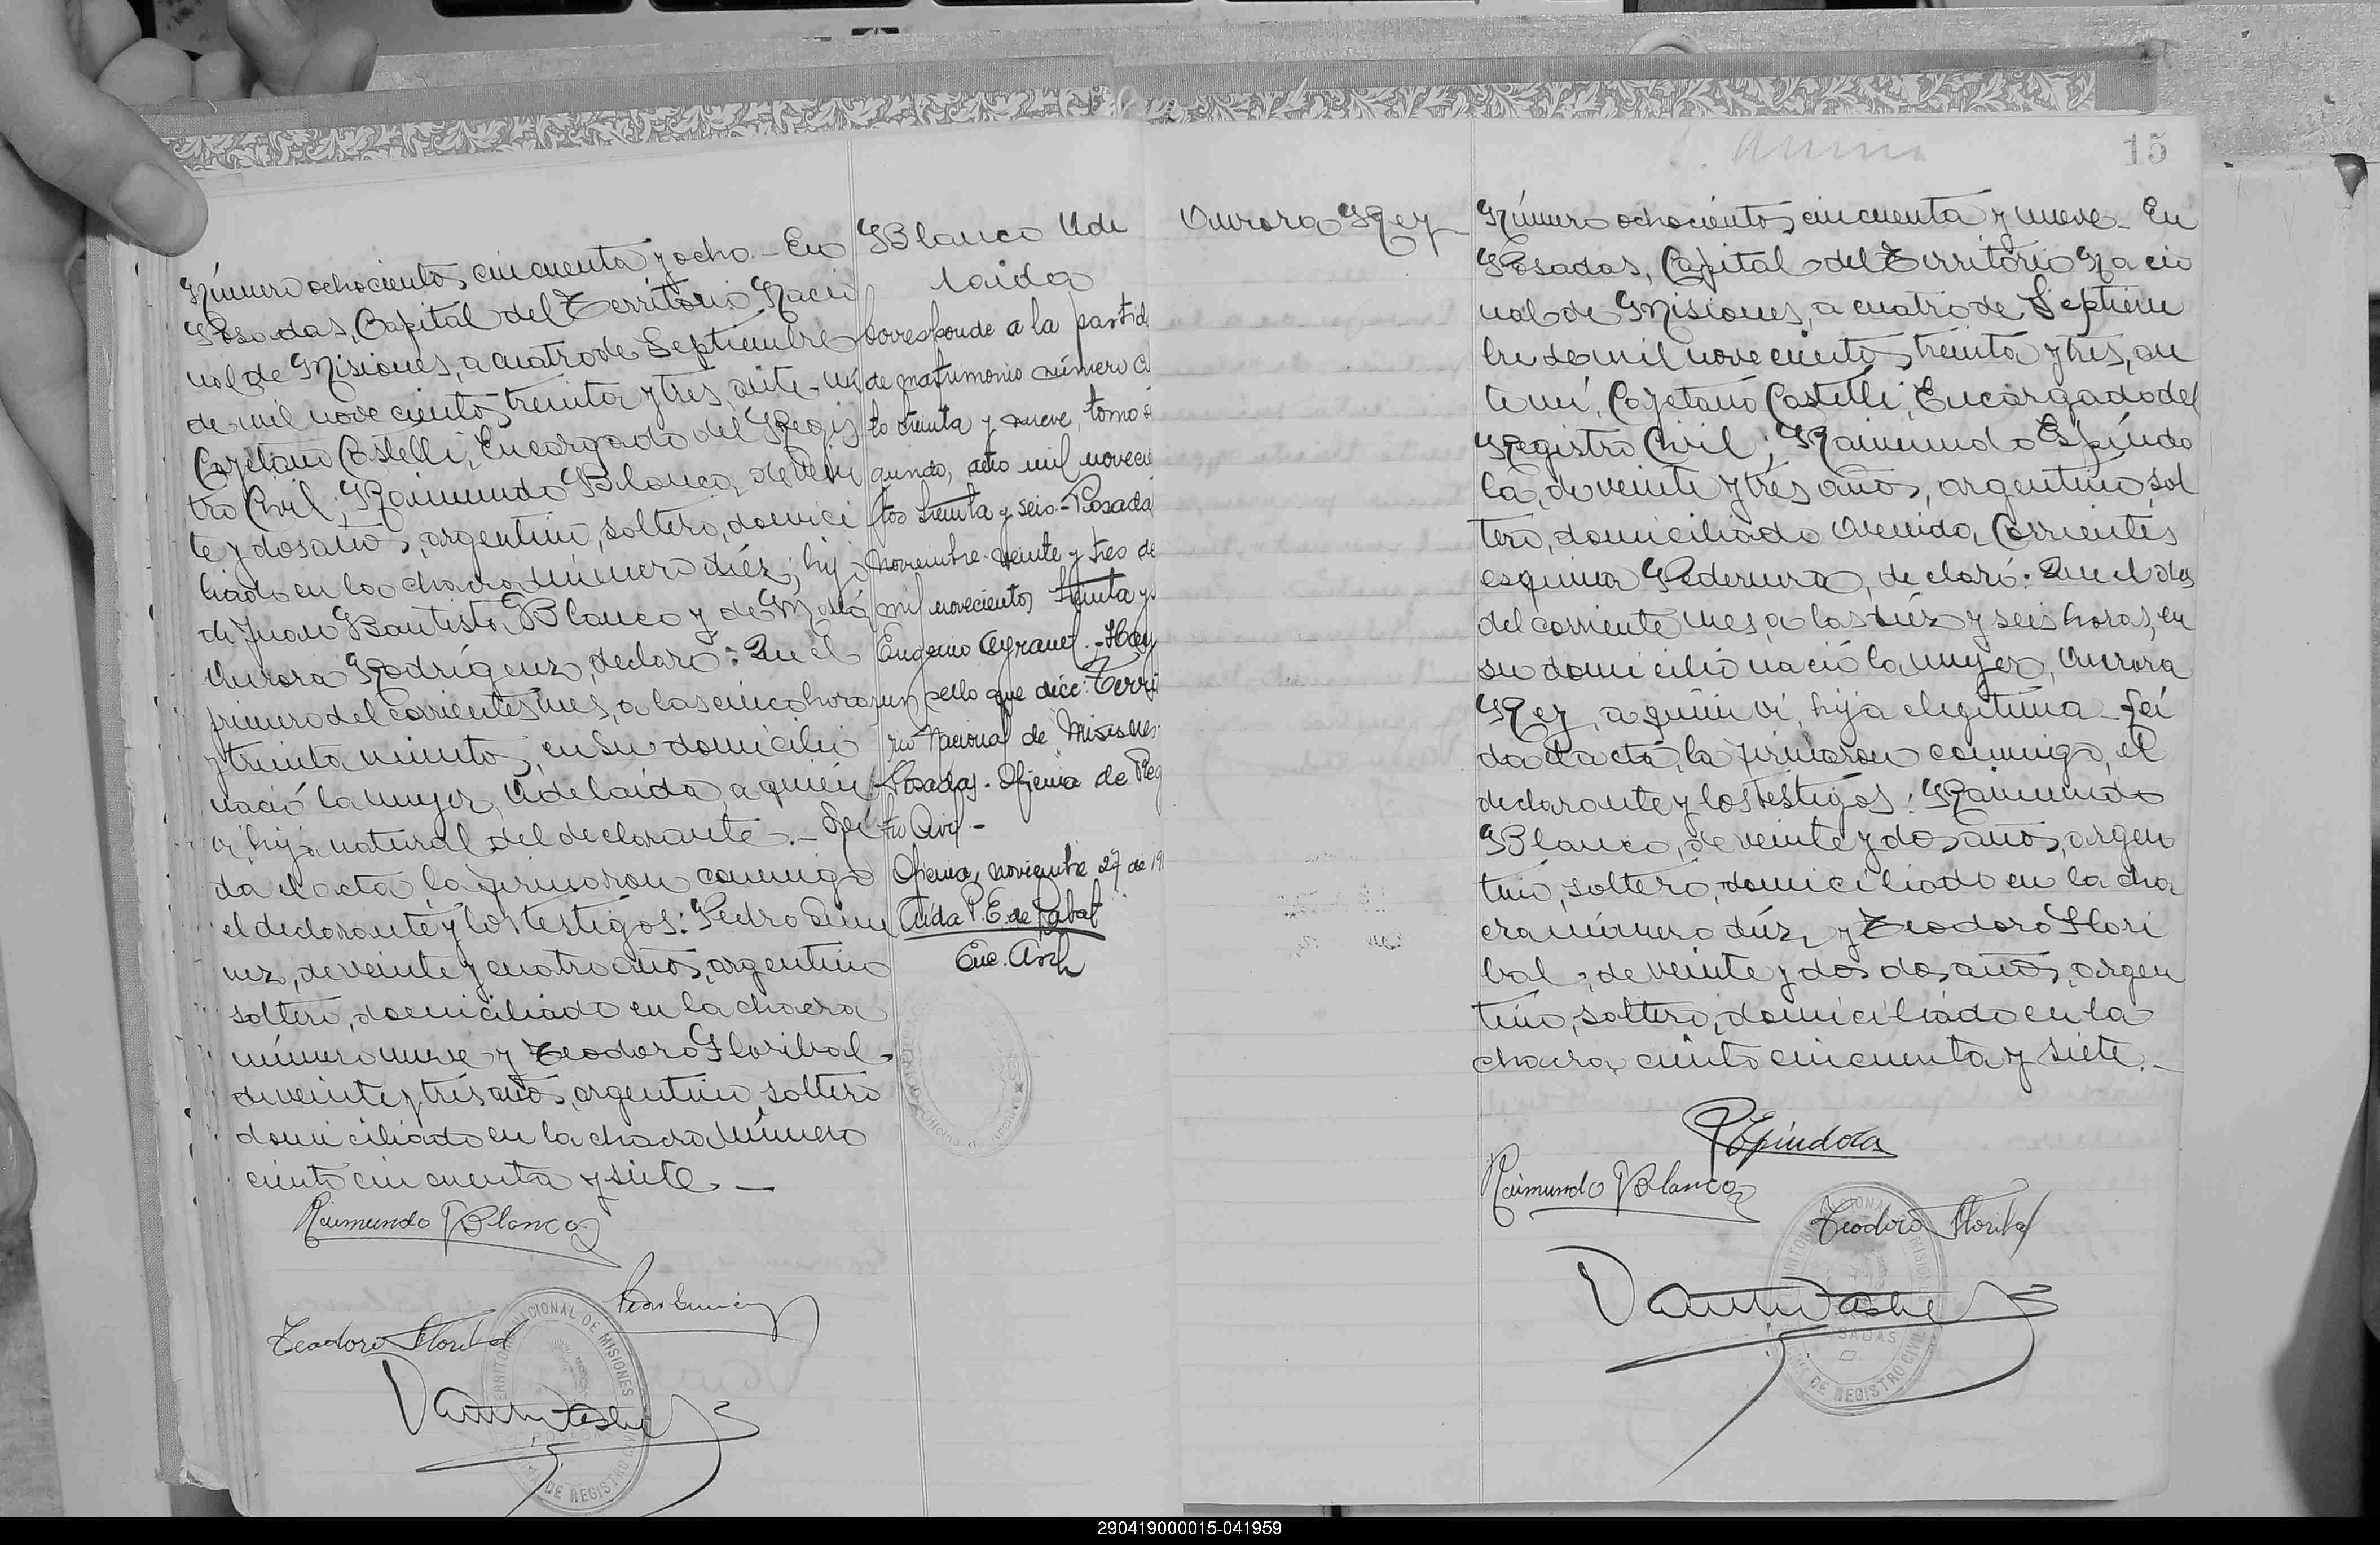 Número ochocientos cincuenta y ocho - En
Posadas, Capital del Territorio Nacio
nal de Misiones, a cuatro de Septiembre
de mil novecientos treinta y tres, ante mí
Cayetano Castelli, Encargado del Regis
tro Civil; Raimundo Blanco, de vein
te y dos años, argentino, soltero, domici
liado en la chacra número diéz; hijo
de Juan Bautista Blanco y de María
Aurora Rodríguez, declaró: Que el
primero del corriente mes, a las cinco horas
y treinta minutos, en su domicilio
nació la mujer, Adelaida, a quién
vi, hija natural del declarante. - Leí
da el acta, la firmaron conmigo
el declarante y los testigos: Pedro
de veinte y cuatro años, argentino
soltero, domiciliado en la chacra
número nueve y Teodoro Floribal
de veinte y tres años, argentino, soltero
domiciliado en la chacra número
ciento cincuenta y siete -
Raimundo Blanco
Teodoro Floribal
TERRITORIO NACIONAL DE MISIONES
DE REGISTRO CIVIL
Blanco Ade
laida
Corresponde a la partid
de matrimonio número ci
to treinta y nueve, tomo s
gundo, año mil novecie
tos treinta y seis. - Posadas
noviembre veinte y tres de
mil novecientos treinta y s
Eugenio - Hay
un sello que dice: Territ
rio Nacional de Misiones
Posadas - Oficina de Reg
tro Civil -
Oficina, noviembre 27 de 19
Aida P. E. de
Enc. Arch
Aurora Rey
15
Número ochocientos cincuenta y nueve - En
Posadas, Capital del Territorio Nacio
nal de Misiones, a cuatro de Septiem
bre de mil novecientos treinta y tres, an
te mí, Cayetano Castelli, Encargado del
Registro Civil; Raimundo Espíndo
la, de veinte y trés años, argentino, sol
tero, domiciliado Avenida Corrientes
esquina Pedernera, declaró: Que el dos
del corriente mes, a las diéz y seis horas, en
su domicilio nació la mujer, Aurora
Rey, a quién vi, hija elegítima - Leí
da el acta, la firmaron conmigo, el
declarante y los testigos: Raimundo
Blanco, de veinte y dos años, argen
tino, soltero, domiciliado en la cha
cra número diéz, y Teodoro Flori
bal, de veinte y dos dos años, argen
tino, soltero, domiciliado en la
chacra ciento cincuenta y siete. -
REspindola
Raimundo Blanco
Teodoro Floribal
POSADAS
DE REGISTRO CIVIL
290419000015-041959